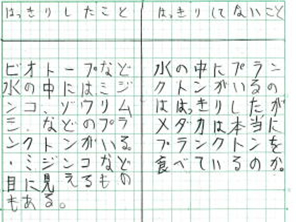 はっきりしたこと
ビオトープなど
水の中にはミジ
ンコ、ゾウリム
シ、などのプラ
ンクトンがいる。
・ミジンコなど
目に見えるもの
もある。
はっきりしてないこと
水の中にプラン
クトンがいるの
ははっきりしたが
メダカは本当に
プランクトンを
食べているのか。